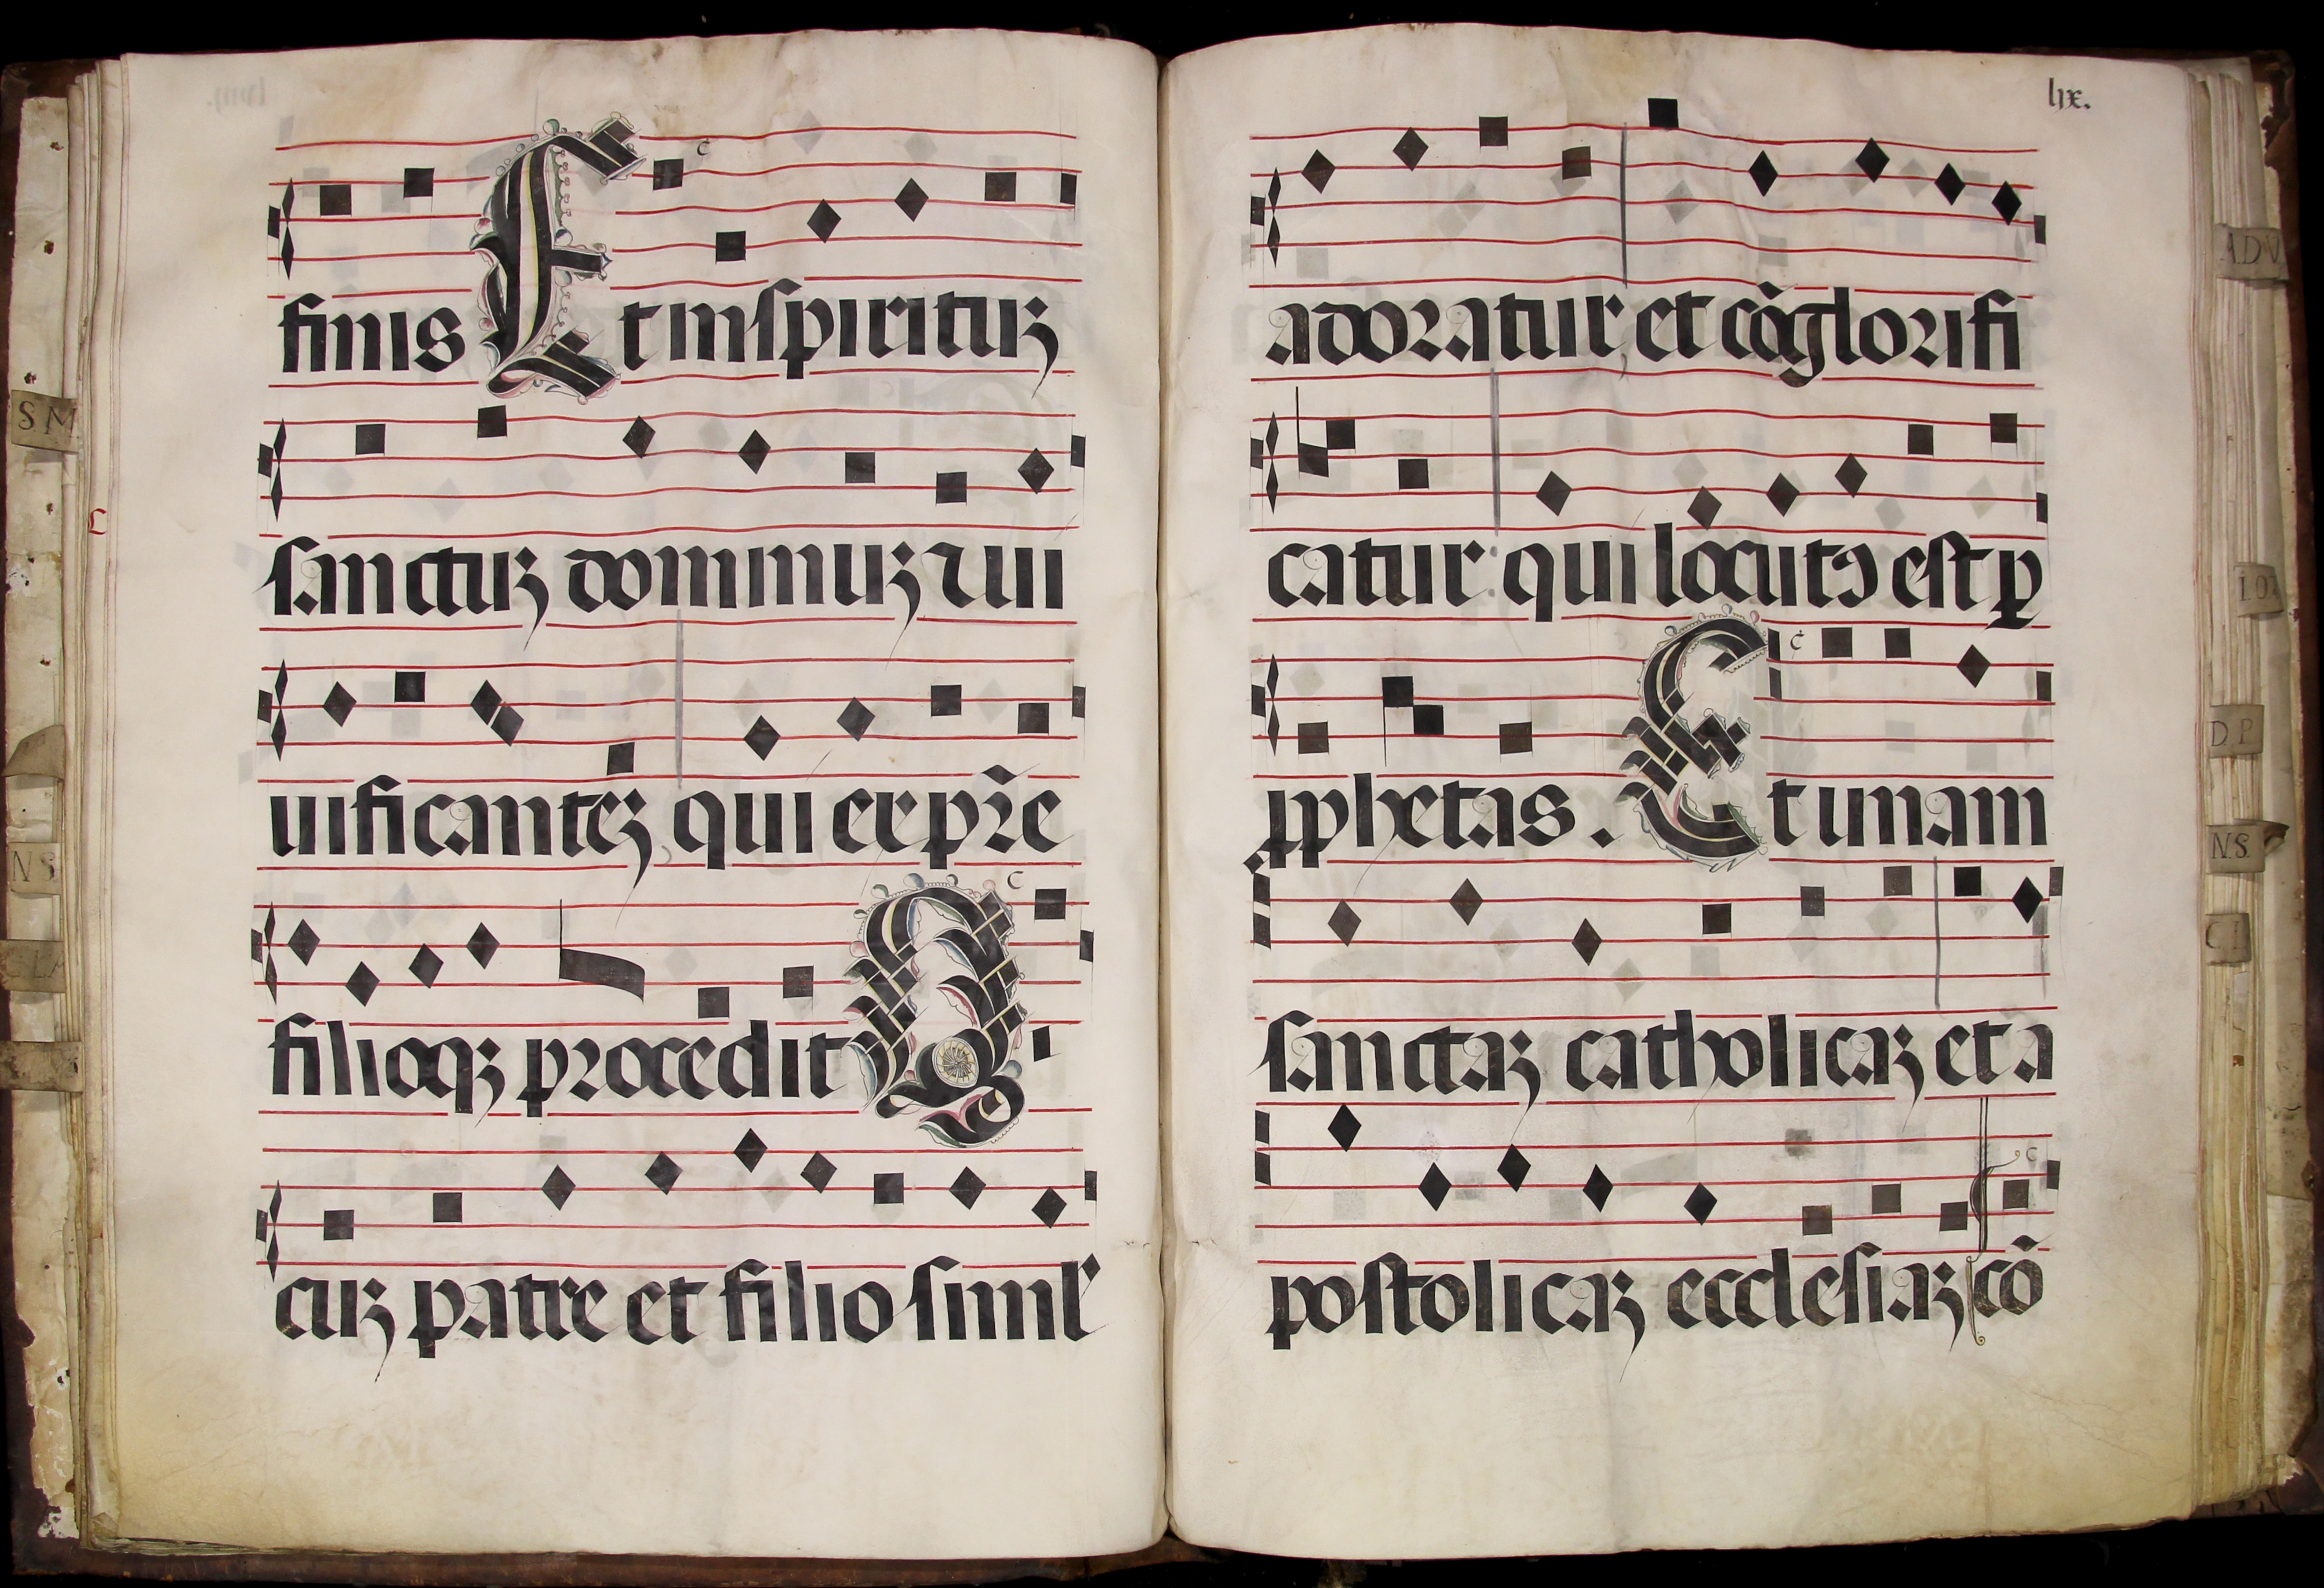 finis Et in spirituʒ
sanctuʒ dominuʒ ⁊ ui
uificanteʒ qui ex pr̃e
filioqʒ procedit Q
cuʒ patre et filio simil'
lix.
adoratur, et cõglorifi
catur: qui locutꝰ est ꝑ
ꝓphetas. Et unam
sanctaʒ catholicaʒ et a
postolicaʒ ecclesiaʒ cõ
S M
N S
A D V
D P
N S